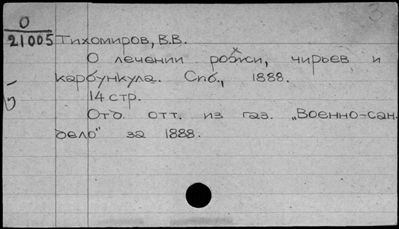 О
21005 Тихомиров, В.В.
О лечении рожи, чирьев и
карбункула. Спб., 1888.
14 стр.
Отд. отт. из газ. „Военно-сан.
дело" за 1888.